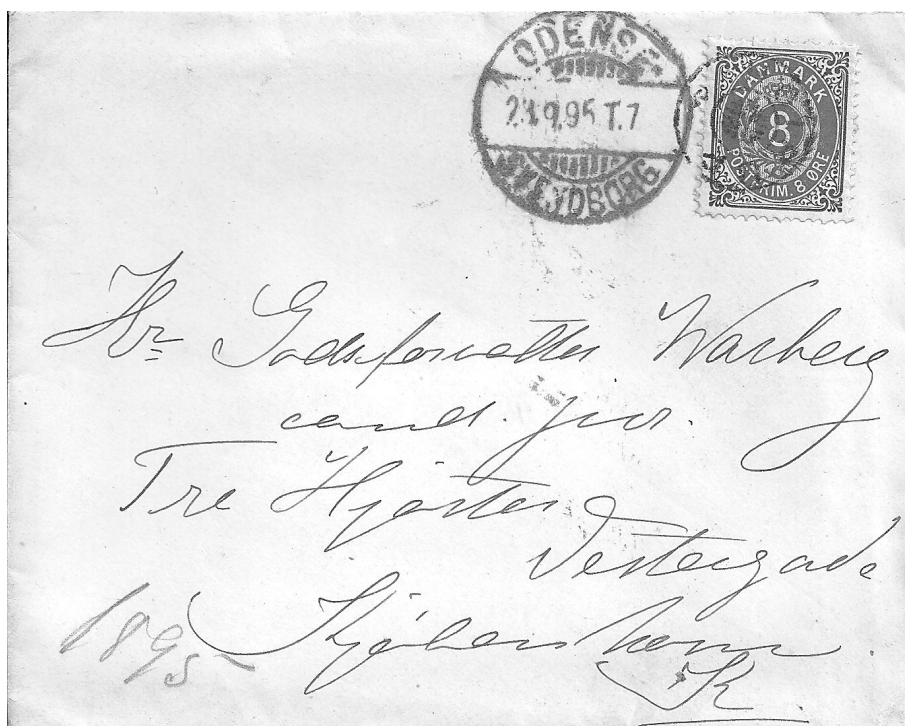 ODENSE
9.95 T.7
SVENDBORG
DANMARK
8
POSTFRIM. 8 ØRE
Hr Godsforvalter Warberg
cand. jur.
Tre Hjorter
Vestergade
Kjøbenhavn
K
1895